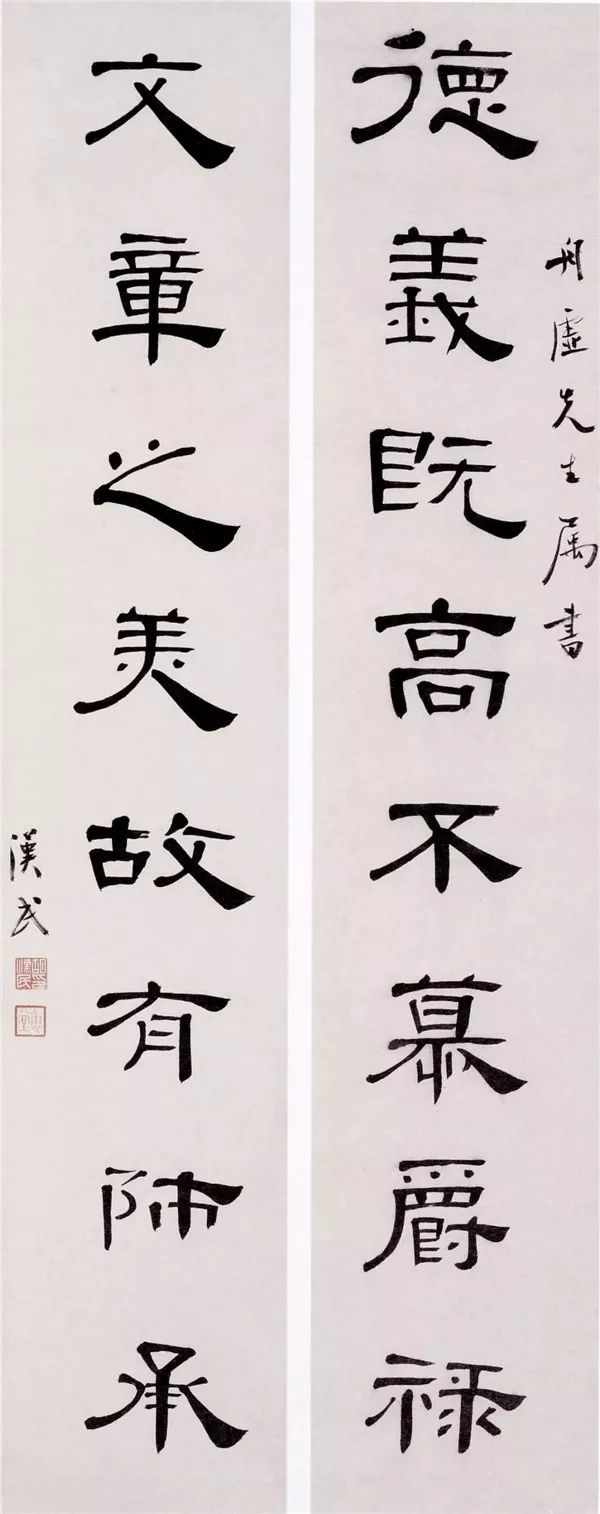 德義既高不慕爵禄
舟虛先生属書
文章之美故有師承
漢民